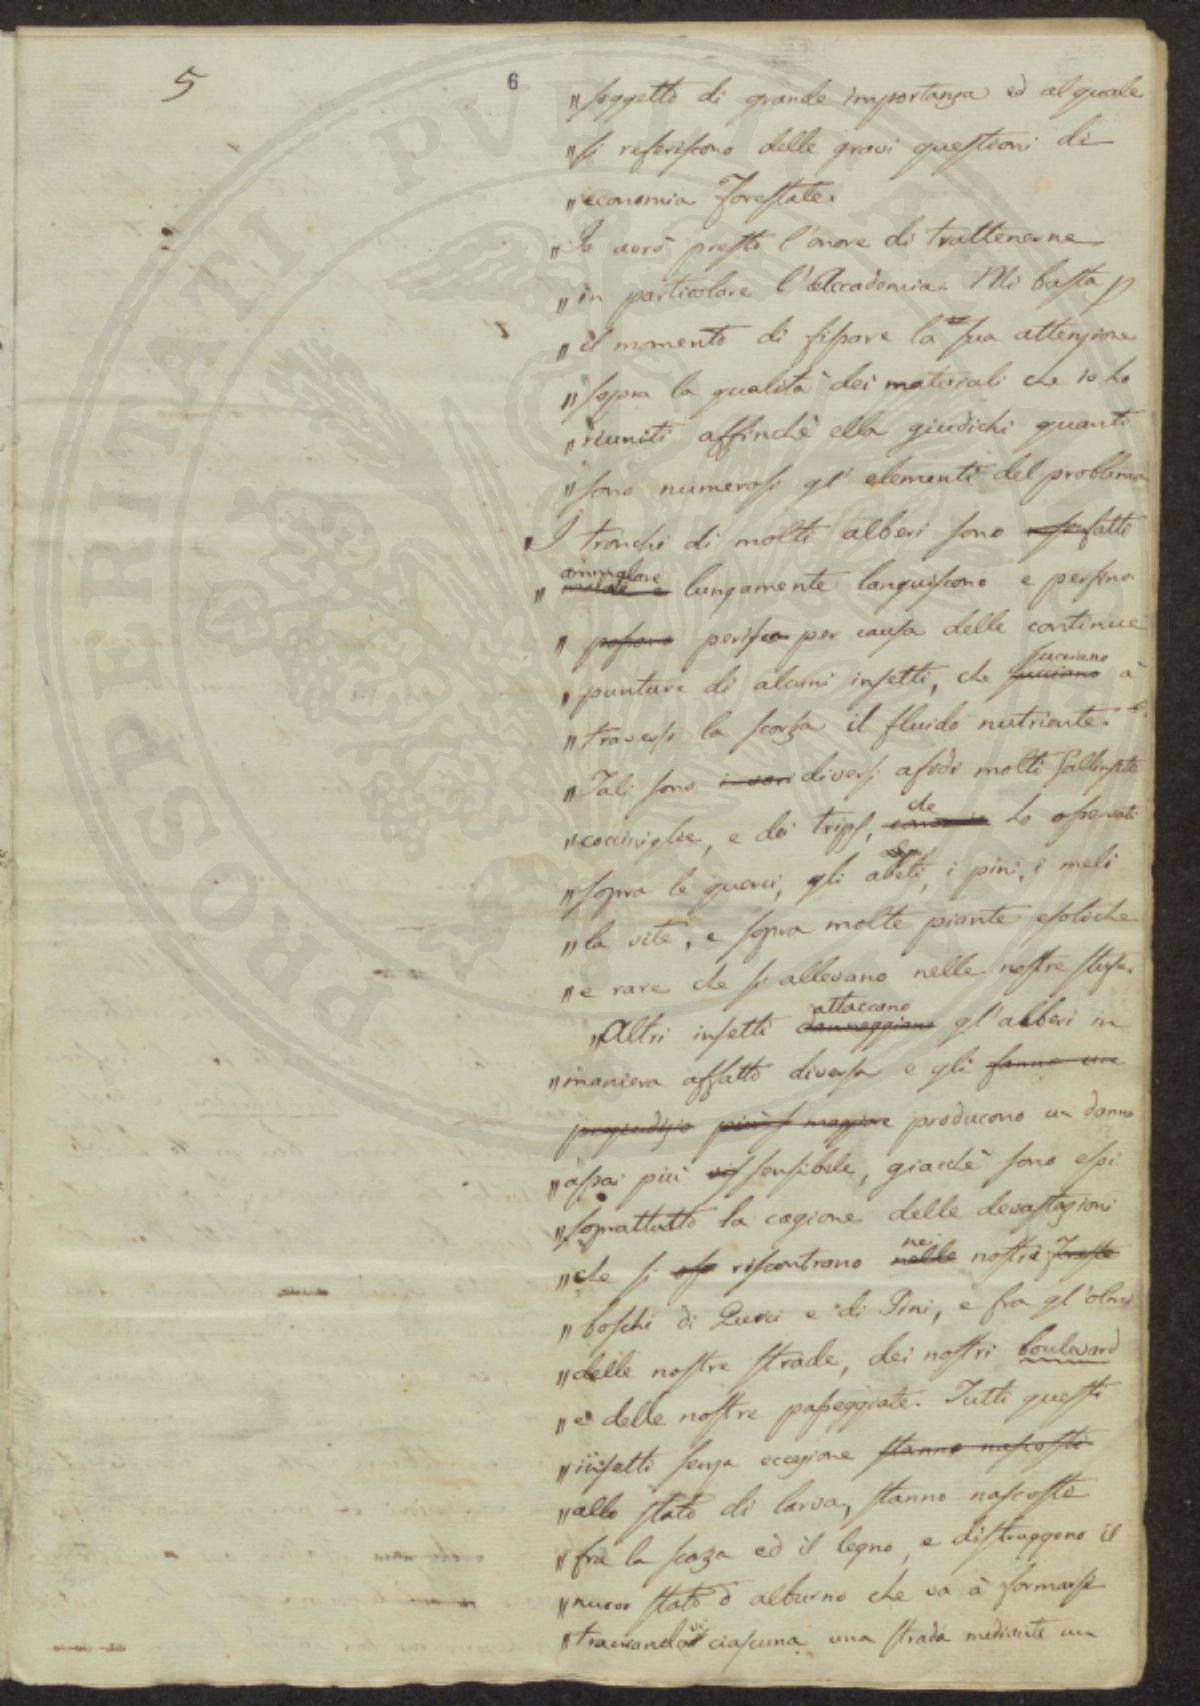 5
6
„ soggetto di grande importanza ed al quale
„ si riferiscono delle gravi questioni di
„ economia forestale.
„ Io avrò presto l'onore di trattenerne
„ in particolare l'Accademia. Mi basta p
„ il momento di fissare la sua attenzione
„ sopra la qualità dei materiali che io ho
„ riuniti affinchè ella giudichi quanti
„ sono numerosi gl' elementi del problema
„ I tronchi di molti alberi sono fatti
ammalare
„ lungamente languiscono e persino
„ possono periscono per causa delle continue
succiano
„ punture di alcuni insetti, che succiano à
„ traverso la scorza il fluido nutriente.
„ Tali sono i vari diversi afidi molti Gallinsetti
che
„ cocciniglie, e dei trips, ho osservati
„ sopra le querci, gli abeti, i pini, i meli
„ la vite, e sopra molte piante esotiche
„ e rare che si allevano nelle nostre stufe.
attaccano
„ Altri insetti danneggiano gl'alberi in
„ maniera affatto diversa e gli fanno un
pregiudizio più maggiore producono un danno
„ assai più sensibile, giacchè sono essi
„ soprattutto la cagione delle devastazioni
nei
„ che si riscontrano nelle nostri foreste
„ boschi di Querci e di Pini, e fra gl'olmi
„ delle nostre strade, dei nostri boulevard
„ e delle nostre passeggiate. Tutti questi
„ insetti senza eccezione stanno nascosti
„ allo stato di larva, stanno nascosti
„ fra la scorza ed il legno, e distruggono il
„ nuovo stato d alburno che va à formarsi
vi
„ traversando ciascuna una strada mediante un